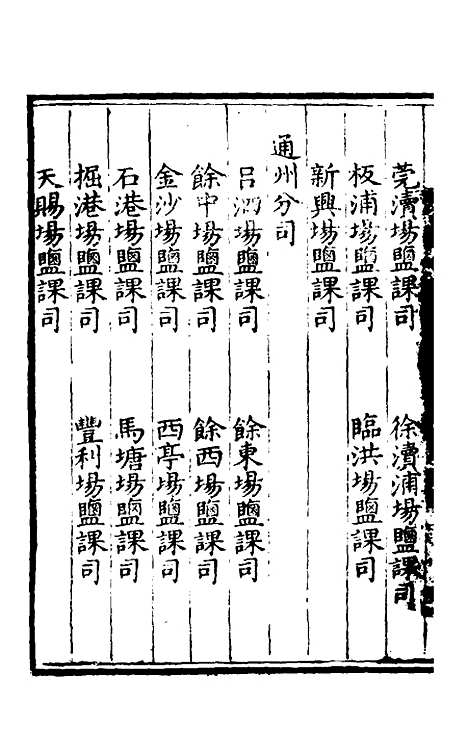 莞瀆場鹽課司　徐瀆浦場鹽課司
板浦場鹽課司　臨洪場鹽課司
新興場鹽課司
通州分司
呂四場鹽課司　餘東場鹽課司
餘中場鹽課司　餘西場鹽課司
金沙場鹽課司　西亭場鹽課司
石港場鹽課司　馬塘場鹽課司
掘港場鹽課司　豐利場鹽課司
天賜場鹽課司